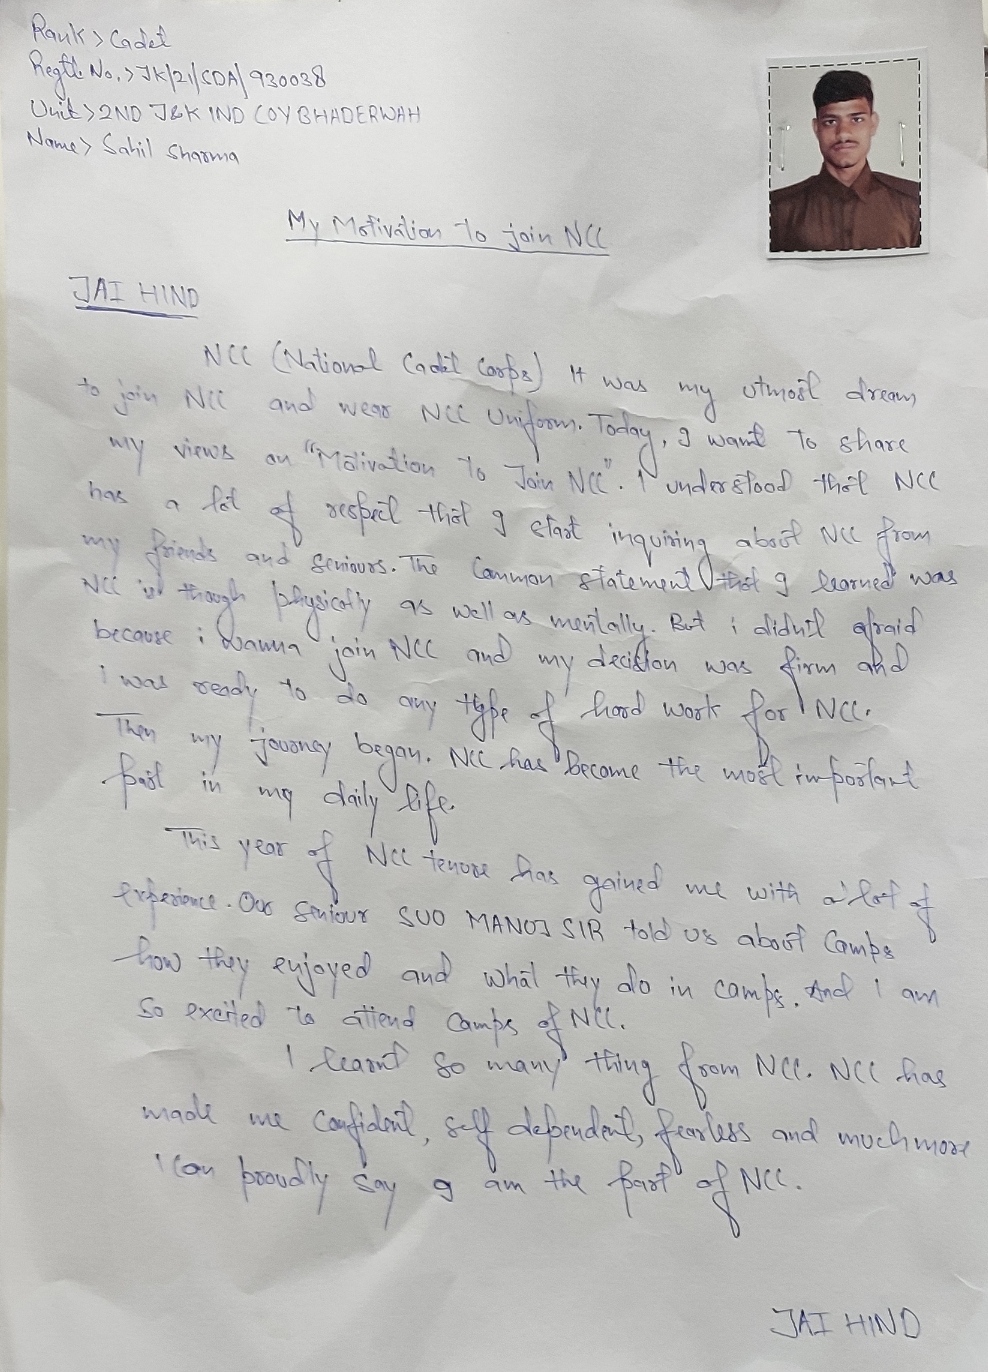 Rank > Cadet
Regtl. No. > JK/21/CDA/930038
Unit > 2ND J&K IND COY BHADERWAH
Name > Sahil Sharma
My Motivation To join NCC
JAI HIND
NCC (National Cadet Corps) It was my utmost dream
to join NCC and wear NCC Uniform. Today, I want to share
my views on "Motivation To Join NCC". I understood that NCC
has a lot of respect that I start inquiring about NCC from
my friends and seniours. The Common statement that I learned was
NCC is though physically as well as mentally. But i didn't afraid
because i wanna join NCC and my decision was firm and
i was ready to do any type of hard work for NCC.
Then my journey began. NCC has become the most important
part in my daily life.
This year of NCC tenure has gained me with a lot of
experience. Our seniour SUO MANOJ SIR told us about Camps
how they enjoyed and what they do in camps. And I am
so excited to attend Camps of NCC.
I learnt so many thing from NCC. NCC has
made me confident, self dependent, fearless and much more
I can proudly say I am the part of NCC.
JAI HIND